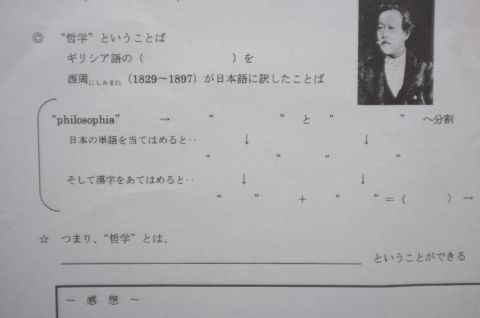 ◎ “哲学”ということば
ギリシア語の（　　　　　　　）を
西周にしあまね（1829～1897）が日本語に訳したことば
“philosophia”　→　“　　　　　”　と　“　　　　　”　へ分割
日本の単語を当てはめると‥　↓　　　　　↓
“　　　　　”　　“　　　　　”
そして漢字をあてはめると‥　↓　　　　　↓
“　　”　＋　“　　”＝（　　　）→
☆ つまり、“哲学”とは、
＿＿＿＿＿＿＿＿＿＿＿＿＿＿＿＿＿＿＿＿ ということができる
～ 感 想 ～